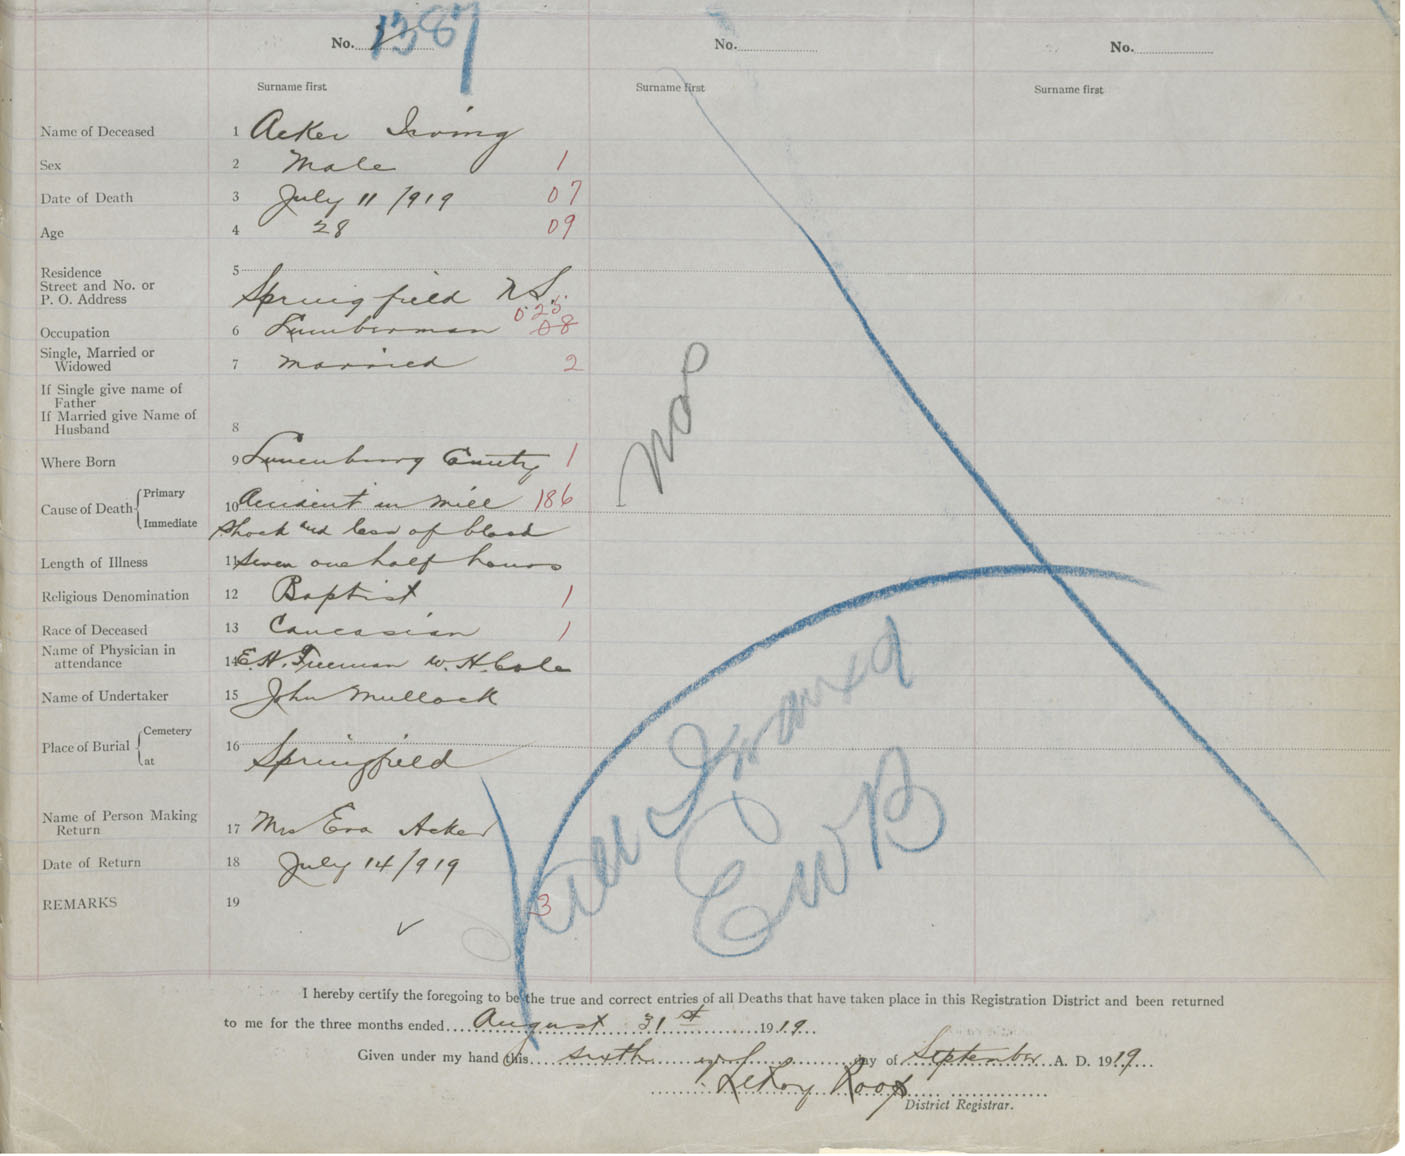 1387
No. No. No.
Surname first Surname first Surname first
Name of Deceased 1 Acker Irving
Sex 2 Male 1
Date of Death 3 July 11/919 07
Age 4 28 09
Residence 5
Street and No. or
P. O. Address Springfield N.S.
025
Occupation 6 Lumberman 08
Single, Married or
Widowed 7 Married 2
If Single give name of
Father
If Married give Name of
Husband 8
Where Born 9 Lunenburg County 1
Cause of Death { Primary 10 Accident in mill 186
Immediate Shock and loss of blood
Length of Illness 11 Seven one half hours
Religious Denomination 12 Baptist 1
Race of Deceased 13 Caucasian 1
Name of Physician in
attendance 14 E.H. Freeman W.H. Cole
Name of Undertaker 15 John Mullock
Place of Burial { Cemetery 16
at Springfield
Name of Person Making
Return 17 Mrs Eva Acker
Date of Return 18 July 14/919
REMARKS 19 3
EWB
I hereby certify the foregoing to be the true and correct entries of all Deaths that have taken place in this Registration District and been returned
to me for the three months ended August 31st 1919
Given under my hand this sixth day of September A. D. 1919
LeRoy Roop
District Registrar.